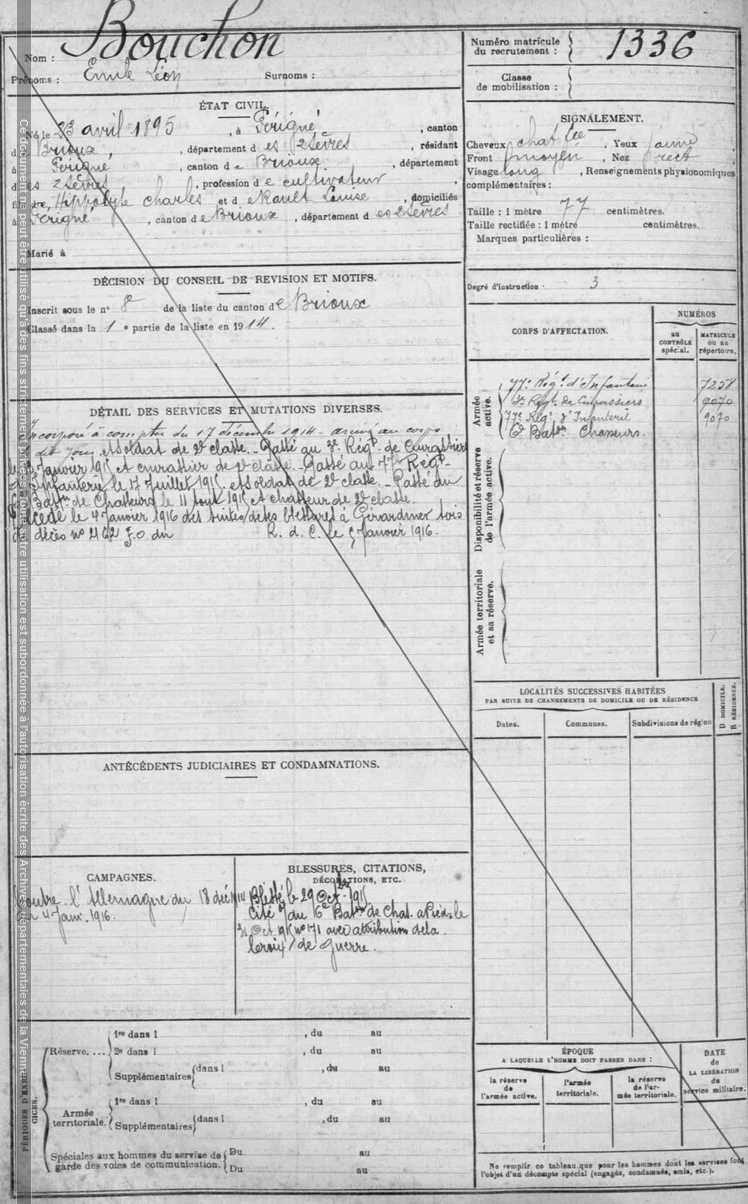 Bouchon
Nom :
Prénoms : Emile Léon Surnoms :
Numéro matricule
du recrutement : 1336
Classe
de mobilisation :
ÉTAT CIVIL.
Né le 23 avril 1895, à Périgné, canton
de Brioux, département des 2 Sèvres, résidant
à Périgné, canton de Brioux, département
des 2 Sèvres, profession de cultivateur
Hippolyte Charles et d Louise, domiciliés
à Périgné, canton de Brioux, département des 2 Sèvres
Marié à
SIGNALEMENT.
Cheveux chat fcé, Yeux
Front moyen, Nez rect
Visage long, Renseignements physionomiques
complémentaires :
Taille : 1 mètre 77 centimètres.
Taille rectifiée : 1 mètre centimètres.
Marques particulières :
Degré d'instruction 3
DÉCISION DU CONSEIL DE REVISION ET MOTIFS.
Inscrit sous le n° 8 de la liste du canton de Brioux
Classé dans la 1e partie de la liste en 1914.
DÉTAIL DES SERVICES ET MUTATIONS DIVERSES.
Incorporé à compter du 17 décembre 1914. arrivé au corps
dit jour et soldat de 2e classe. Passé au Régt de Cuirassiers
Janvier 1915 et cuirassier de 2e classe. Passé au 77e Régt
d'Infanterie le 17 Juillet 1915 et soldat de 2e classe. Passé au
Batton de Chasseurs le 11 Août 1915 et chasseur de 2e classe.
Décédé le 4 Janvier 1916 des suites de ses blessures à Gérardmer
décès n° du R. d. C. le 5 Janvier 1916.
CORPS D'AFFECTATION.
NUMÉROS
AU CONTRÔLE spécial.
MATRICULE OU AU répertoire.
Armée active.
77e Régt d'Infanterie 7258
Régt de Cuirassiers 9070
77e Régt d'Infanterie 9070
6e Batton Chasseurs.
Disponibilité et réserve de l'armée active.
Armée territoriale et sa réserve.
LOCALITÉS SUCCESSIVES HABITÉES
PAR SUITE DE CHANGEMENTS DE DOMICILE OU DE RÉSIDENCE
D. DOMICILE.
R. RÉSIDENCE.
Dates. Communes. Subdivisions de région
ANTÉCÉDENTS JUDICIAIRES ET CONDAMNATIONS.
CAMPAGNES.
Contre l'Allemagne du 18 déc 1914
au 4 Janv. 1916.
BLESSURES, CITATIONS,
DÉCORATIONS, ETC.
Blessé le 29 Octbre 1915
Cité du 6e Baton de Chas. à Pied le
31 Oct 1915 n° 171 avec attribution de la
Croix de Guerre.
PÉRIODES D'EXERCICES.
Réserve.... 1re dans l , du au
2e dans l , du au
Supplémentaires dans l , du au
Armée territoriale. 1re dans l , du au
Supplémentaires dans l , du au
Spéciales aux hommes du service de garde des voies de communication. Du au
Du au
ÉPOQUE
A LAQUELLE L'HOMME DOIT PASSER DANS :
la réserve de l'armée active.
l'armée territoriale.
la réserve de l'armée territoriale.
DATE
de
LA LIBÉRATION
du
service militaire.
Ne remplir ce tableau que pour les hommes dont les services font
l'objet d'un décompte spécial (engagés, condamnés, omis, etc.).
Ce document ne peut être utilisé qu'à des fins strictement toute autre utilisation est subordonnée à l'autorisation écrite des Archives départementales de la Vienne